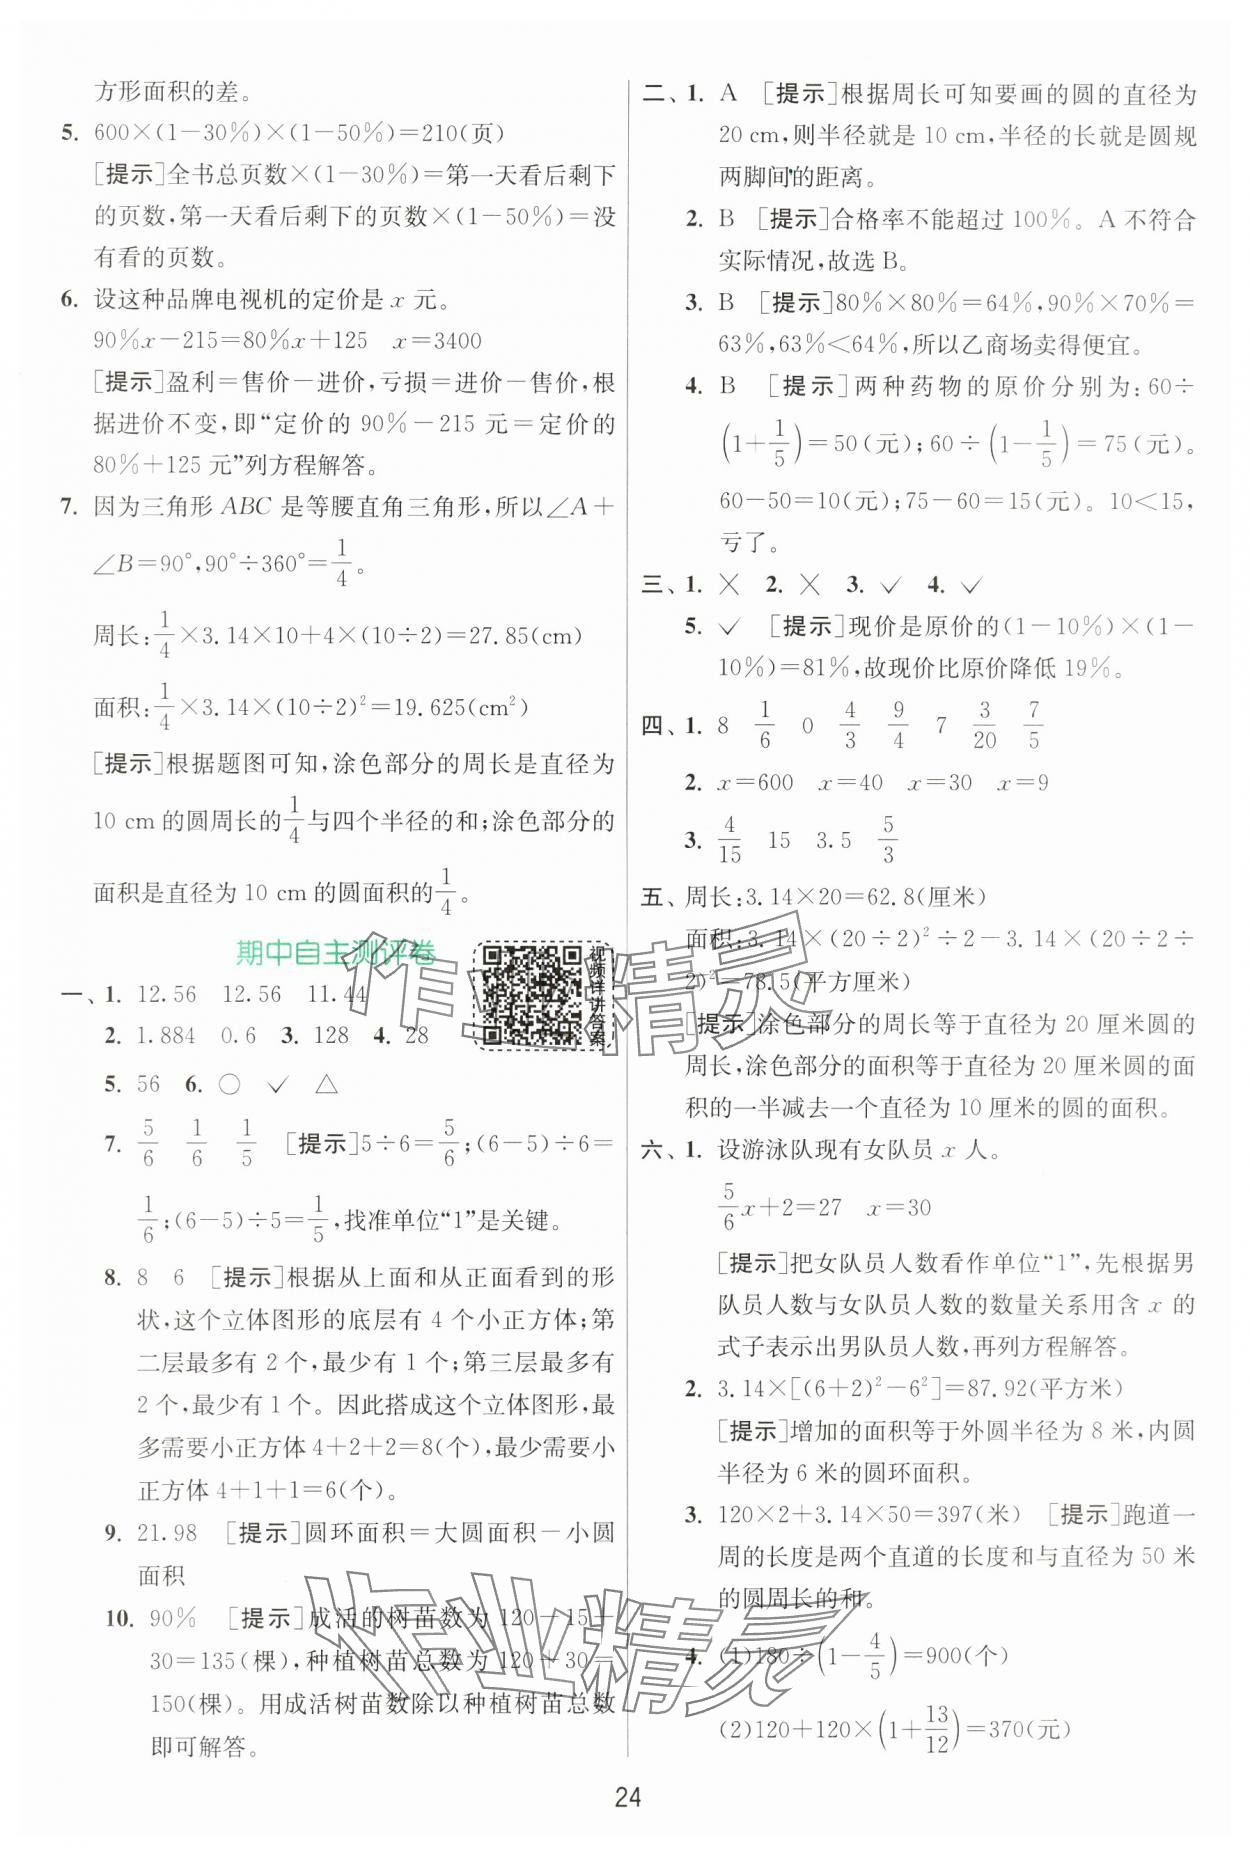 方形面积的差。
5. 600×(1-30%)×(1-50%)=210(页)
[提示]全书总页数×(1-30%)=第一天看后剩下
的页数,第一天看后剩下的页数×(1-50%)=没
有看的页数。
6. 设这种品牌电视机的定价是 x 元。
90%x-215=80%x+125 x=3400
[提示]盈利=售价-进价,亏损=进价-售价,根
据进价不变,即“定价的 90%-215 元=定价的
80%+125 元”列方程解答。
7. 因为三角形 ABC 是等腰直角三角形,所以∠A+
∠B=90°,90°÷360°=1/4。
周长:1/4×3.14×10+4×(10÷2)=27.85(cm)
面积:1/4×3.14×(10÷2)²=19.625(cm²)
[提示]根据题图可知,涂色部分的周长是直径为
10 cm 的圆周长的1/4与四个半径的和;涂色部分的
面积是直径为 10 cm 的圆面积的1/4。
期中自主测评卷
视频详讲答案
一、1. 12.56 12.56 11.44
2. 1.884 0.6 3. 128 4. 28
5. 56 6. ○ ✓ △
7. 5/6 1/6 1/5 [提示]5÷6=5/6;(6-5)÷6=
1/6;(6-5)÷5=1/5,找准单位“1”是关键。
8. 8 6 [提示]根据从上面和从正面看到的形
状,这个立体图形的底层有 4 个小正方体;第
二层最多有 2 个,最少有 1 个;第三层最多有
2 个,最少有 1 个。因此搭成这个立体图形,最
多需要小正方体 4+2+2=8(个),最少需要小
正方体 4+1+1=6(个)。
9. 21.98 [提示]圆环面积=大圆面积-小圆
面积
10. 90% [提示]成活的树苗数为 120-15+
30=135(棵),种植树苗总数为 120+30=
150(棵)。用成活树苗数除以种植树苗总数
即可解答。
二、1. A [提示]根据周长可知要画的圆的直径为
20 cm,则半径就是 10 cm,半径的长就是圆规
两脚间的距离。
2. B [提示]合格率不能超过 100%。A 不符合
实际情况,故选 B。
3. B [提示]80%×80%=64%,90%×70%=
63%,63%<64%,所以乙商场卖得便宜。
4. B [提示]两种药物的原价分别为:60÷
(1+1/5)=50(元);60÷(1-1/5)=75(元)。
60-50=10(元);75-60=15(元)。10<15,
亏了。
三、1. × 2. × 3. ✓ 4. ✓
5. ✓ [提示]现价是原价的(1-10%)×(1-
10%)=81%,故现价比原价降低 19%。
四、1. 8 1/6 0 4/3 9/4 7 3/20 7/5
2. x=600 x=40 x=30 x=9
3. 4/15 15 3.5 5/3
五、周长:3.14×20=62.8(厘米)
面积:3.14×(20÷2)²÷2-3.14×(20÷2÷
2)²=78.5(平方厘米)
[提示]涂色部分的周长等于直径为 20 厘米圆的
周长,涂色部分的面积等于直径为 20 厘米圆的面
积的一半减去一个直径为 10 厘米的圆的面积。
六、1. 设游泳队现有女队员 x 人。
5/6x+2=27 x=30
[提示]把女队员人数看作单位“1”,先根据男
队员人数与女队员人数的数量关系用含 x 的
式子表示出男队员人数,再列方程解答。
2. 3.14×[(6+2)²-6²]=87.92(平方米)
[提示]增加的面积等于外圆半径为 8 米,内圆
半径为 6 米的圆环面积。
3. 120×2+3.14×50=397(米) [提示]跑道一
周的长度是两个直道的长度和与直径为 50 米
的圆周长的和。
4. (1)180÷(1-4/5)=900(个)
(2)120+120×(1+13/12)=370(元)
24
作业精灵
作业精灵